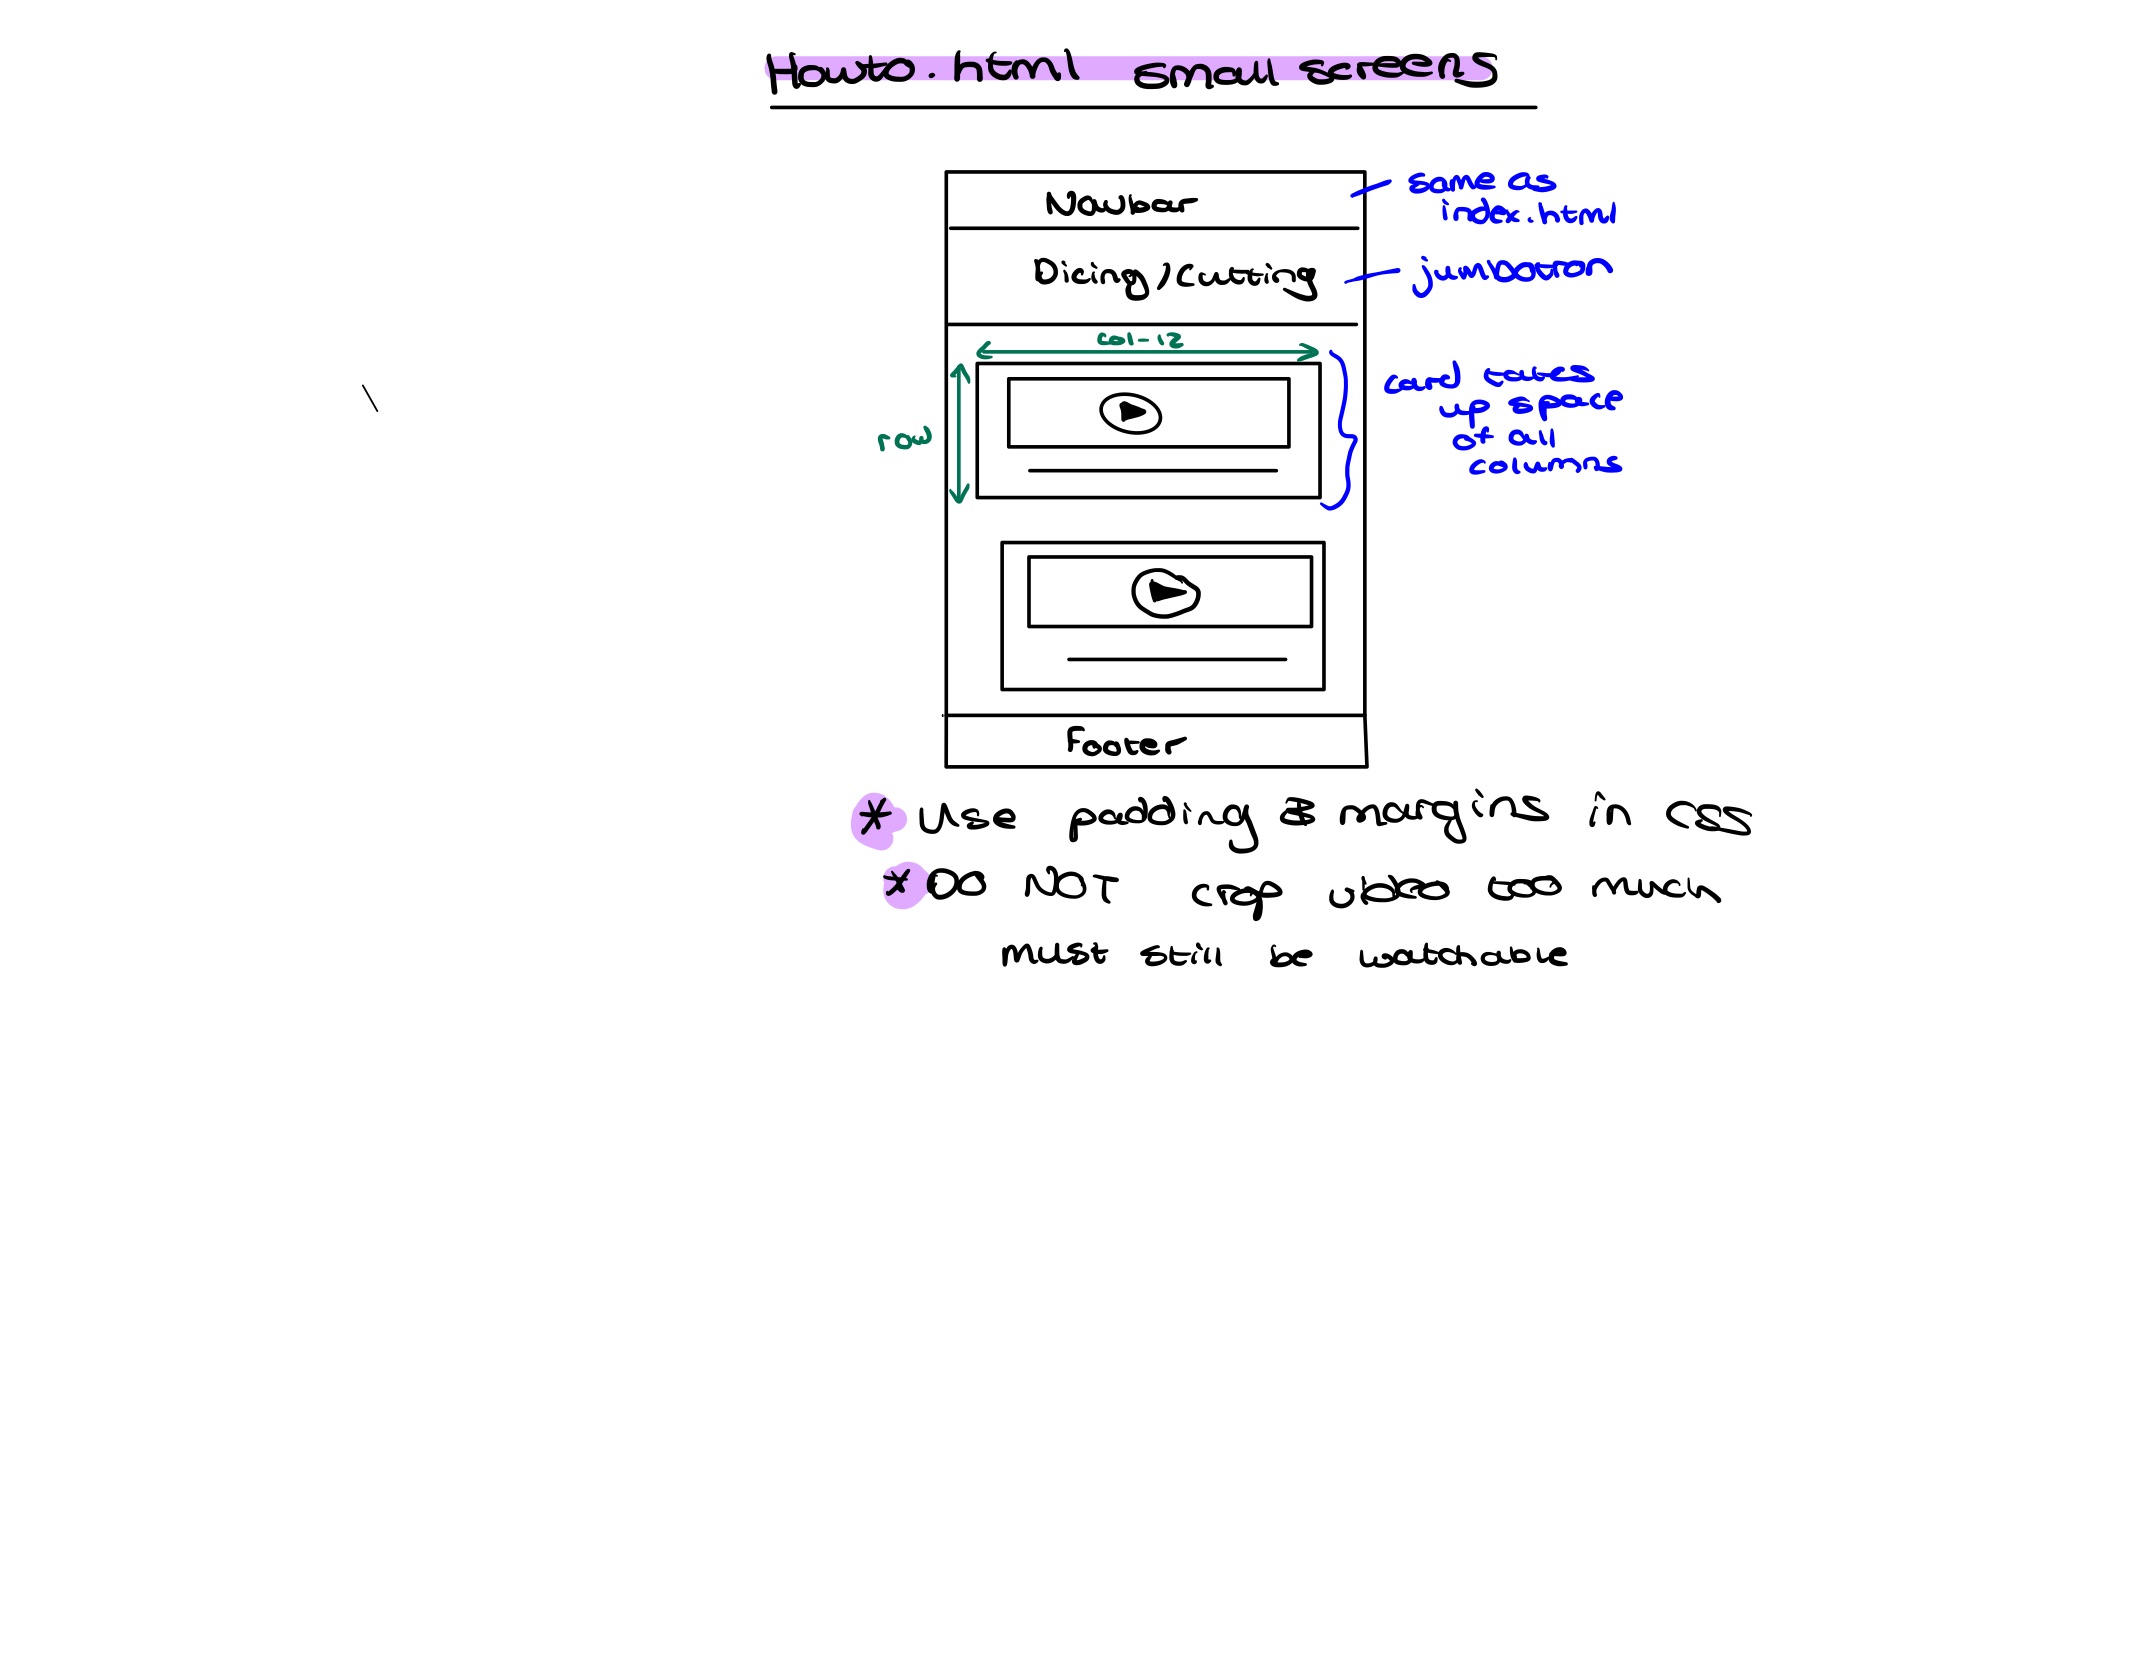 Howto.html small screens
Navbar
same as
index.html
Dicing/Cutting
jumbotron
col-12
row
card takes
up space
of all
columns
Footer
* Use padding & margins in CSS
* DO NOT crop video too much
must still be watchable